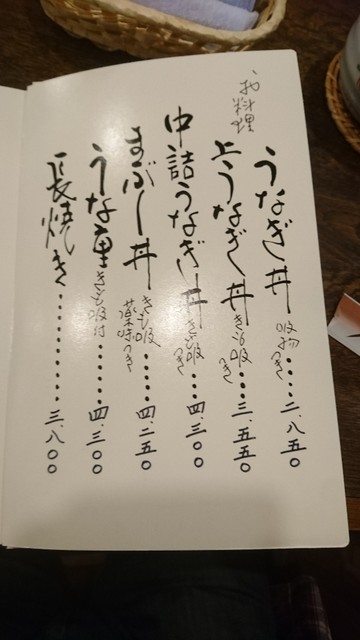 お料理
うなぎ丼 吸物つき・・・・二、八五〇
上うなぎ丼 きも吸つき・・・・三、五五〇
中詰うなぎ丼 きも吸つき・・・・四、三〇〇
まぶし丼 きも吸 薬味つき・・・・四、二五〇
うな重 きも吸付・・・・・・四、三〇〇
長焼き・・・・・・・・・三、八〇〇